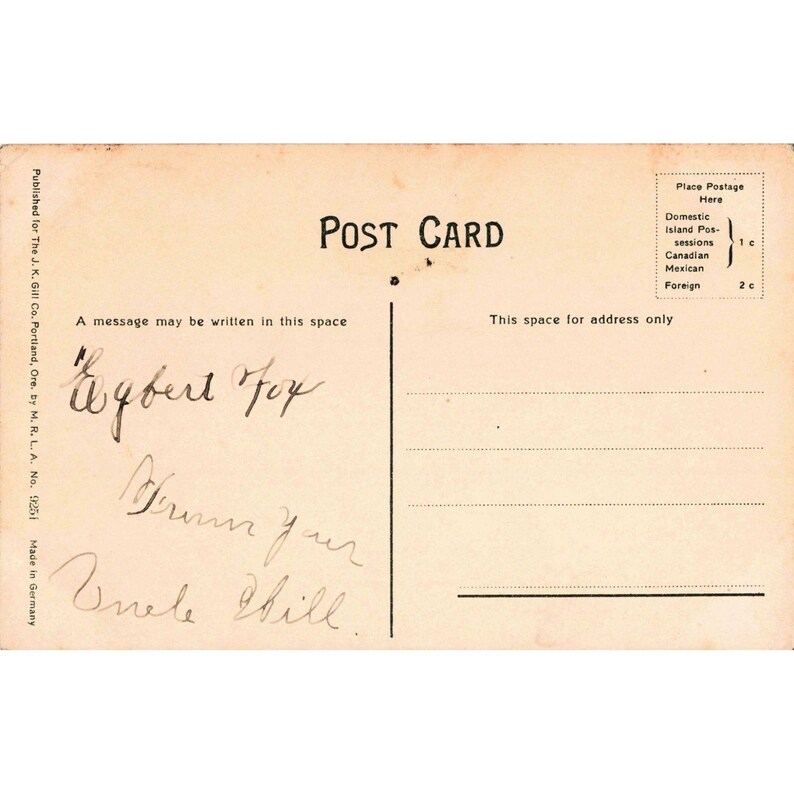 POST CARD
Place Postage
Here
Domestic
Island Pos-
sessions
Canadian
Mexican
1 c
Foreign 2 c
A message may be written in this space
This space for address only
"Egbert Fox
From your
Uncle
Published for The J. K. Gill Co. Portland, Ore. by M. R. L. A. No. 9251 Made in Germany